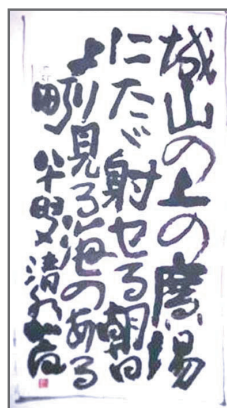 城山の上の廣場
にたゞ射せる朝日
より見る海のある
町 半眼清